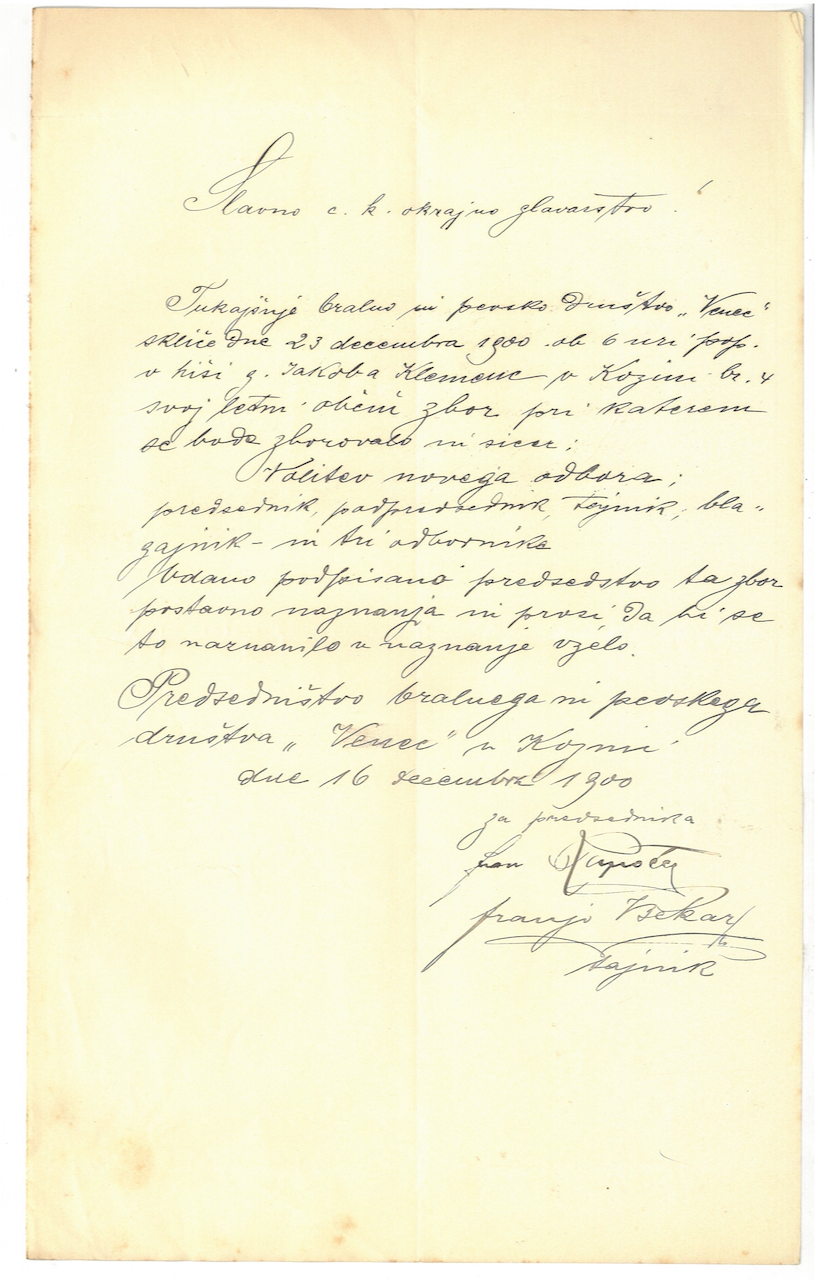 Slavno c. k. okrajno glavarstvo!
Tukajšnje bralno in pevsko društvo „Venec“
skliče dne 23 decembra 1900 ob 6 uri pop.
v hiši g. Jakoba Klemenc v Kozini br. 4
svoj letni občni zbor pri katerem
se bode zborovalo in sicer;
Volitev novega odbora;
predsednik, podpredsednik, tajnik, bla„
gajnik – in tri odbornike
Udano podpisano predsedstvo ta zbor
postavno naznanja in prosi, da bi se
to naznanilo v naznanje vzelo.
Predsedništvo bralnega in pevskega
društva „Venec“ v Kozini
dne 16 decembra 1900
za predsednika
Ivan
Franjo Bekar
tajnik